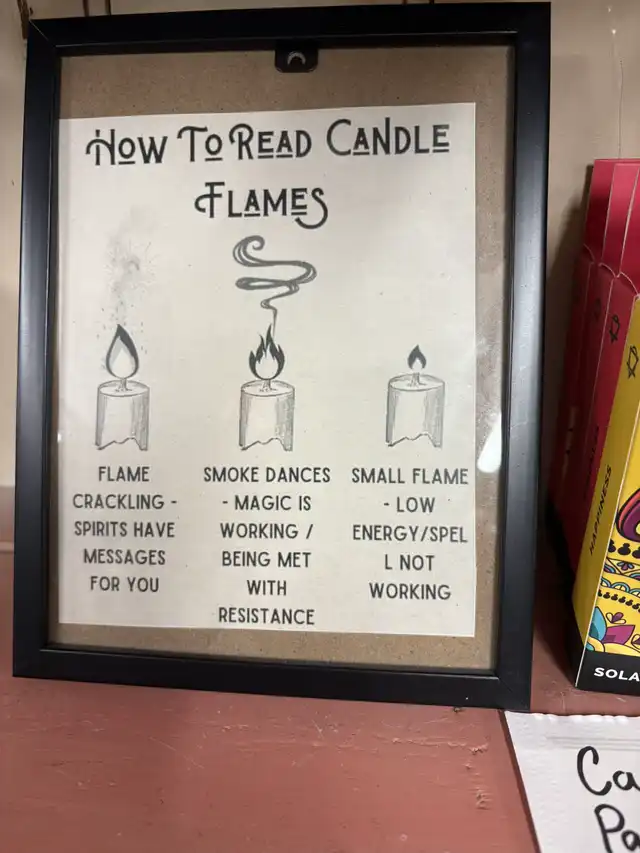 How To Read Candle
Flames
FLAME
CRACKLING -
SPIRITS HAVE
MESSAGES
FOR YOU
SMOKE DANCES
- MAGIC IS
WORKING /
BEING MET
WITH
RESISTANCE
SMALL FLAME
- LOW
ENERGY/SPEL
L NOT
WORKING
HAPPINESS
SOLA
Ca
Pa